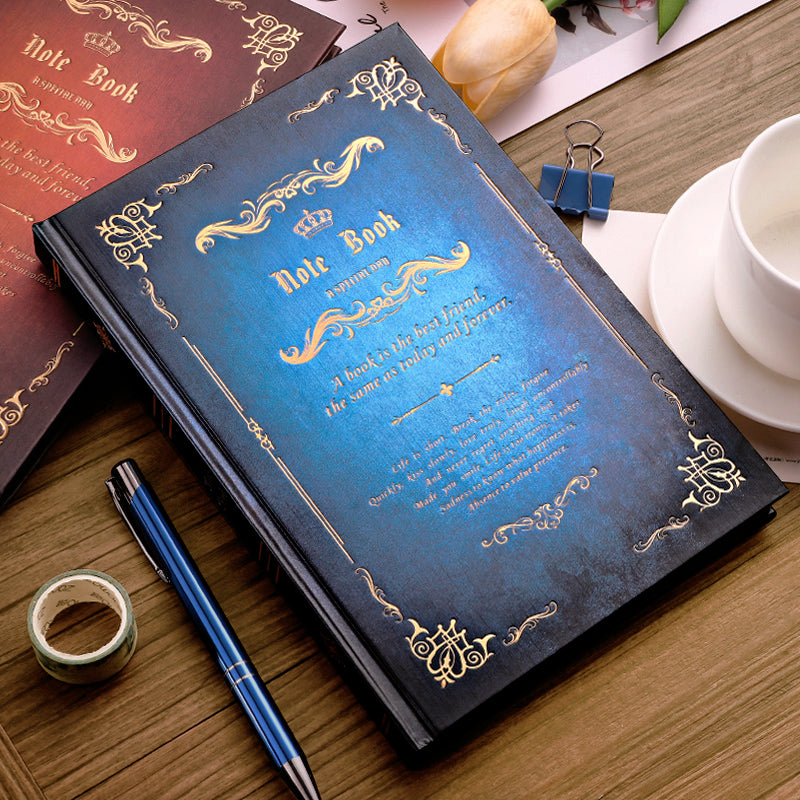 Note Book
A SPECIAL DAY
A book is the best friend,
the same as today and forever.
Life is short. Break the rules, forgive
Quickly, kiss slowly, love truly, laugh uncontrollably
And never regret anything that
Made you smile. Life is too ironic, it takes
Sadness to know what happiness is,
Absence to value presence.
Note Book
A SPECIAL DAY
the best friend,
day and forev
forgive
uncontrollabl
takes
The